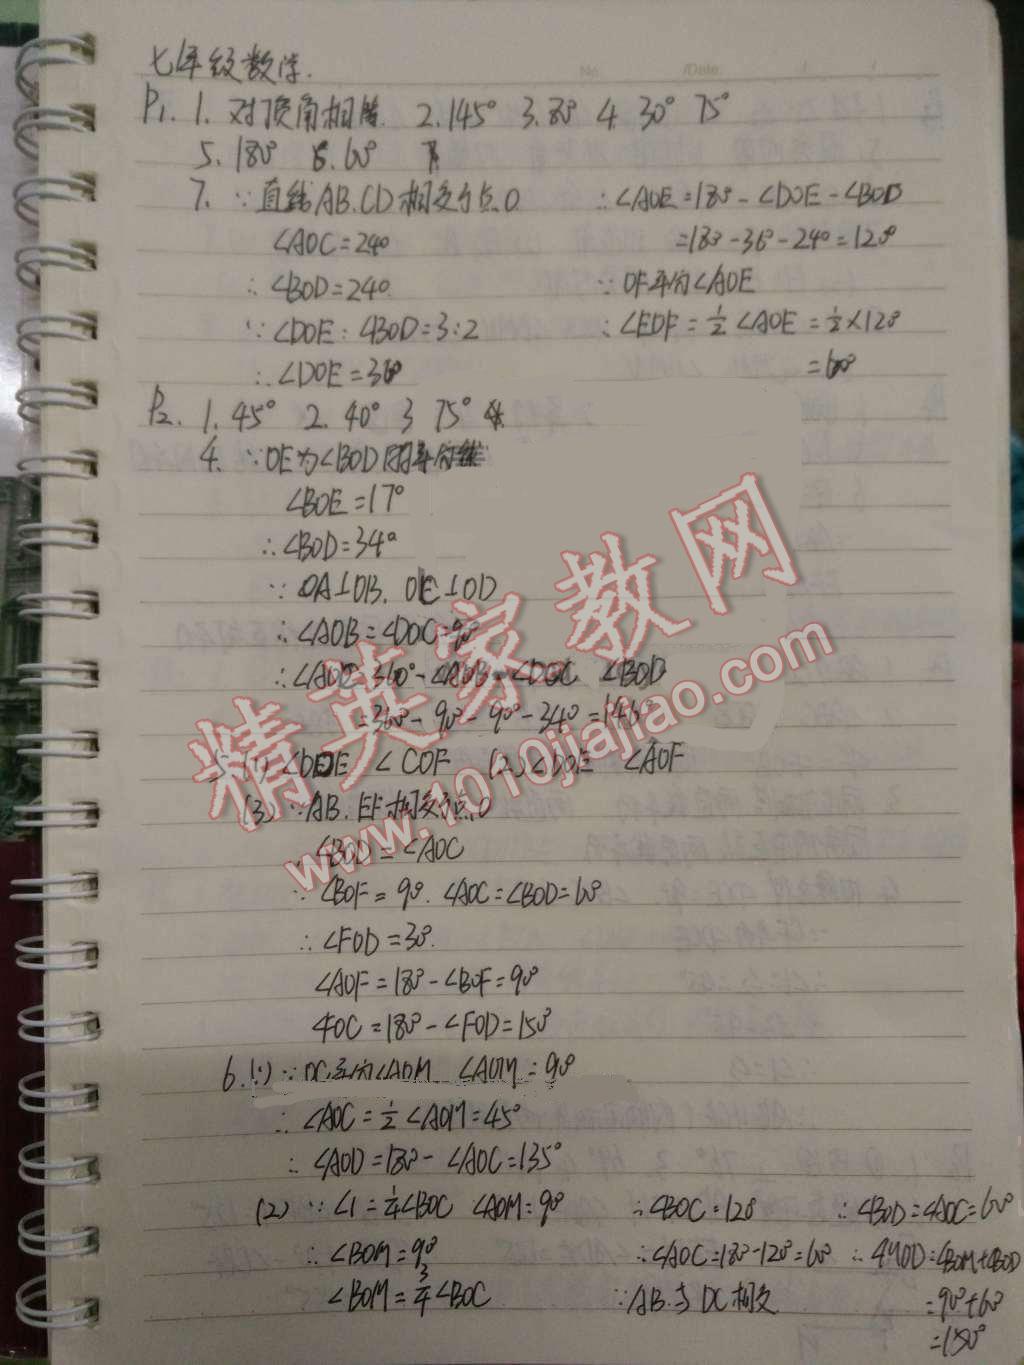 No.
/Date:
七年级数学.
P1. 1. 对顶角相等. 2. 145° 3. 80° 4 30° 75°
5. 180° 6. 60° 7.
7. ∵直线AB.CD相交于点O
∠AOC=24°
∴∠BOD=24°
∵∠DOE:∠BOD=3:2
∴∠DOE=36°
∴∠AOE=180°-∠DOE-∠BOD
=180°-36°-24°=120°
∵OF平分∠AOE
∴∠EOF=1/2∠AOE=1/2×120°
=60°
P2. 1. 45° 2. 40° 3 75°
4. ∵OE为∠BOD的平分线
∠BOE=17°
∴∠BOD=34°
∵OA⊥OB. OC⊥OD
∴∠AOB=∠DOC=90°
∴∠AOC=360°-∠AOB-∠DOC-∠BOD
=360°-90°-90°-34°=146°
5. (1) ∠BOE ∠COF (2) ∠DOE ∠AOF
(3) ∵AB.EF相交于点O
∠BOD=∠AOC
∵∠BOF=90°. ∠AOC=∠BOD=60°
∴∠FOD=30°.
∠AOF=180°-∠BOF=90°
∠FOC=180°-∠FOD=150°
6.(1) ∵OC平分∠AOM ∠AOM=90°
∴∠AOC=1/2∠AOM=45°
∴∠AOD=180°-∠AOC=135°
(2) ∵∠1=1/4∠BOC ∠AOM=90°
∴∠BOM=90°
∠BOM=3/4∠BOC
∴∠BOC=120°
∴∠AOC=180°-120°=60°
∵AB与DC相交
∴∠BOD=∠AOC=60°
∴∠MOD=∠BOM+∠BOD
=90°+60°
=150°
精英家教网
www.1010jiajiao.com